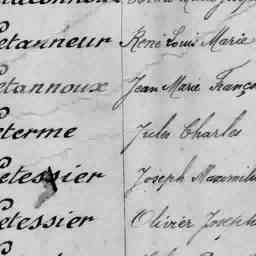 etanneur René Louis Marie
etannoux Jean Marie Franço
eterme Jules Charles
etessier Joseph Maximili
etessier Olivier Joseph